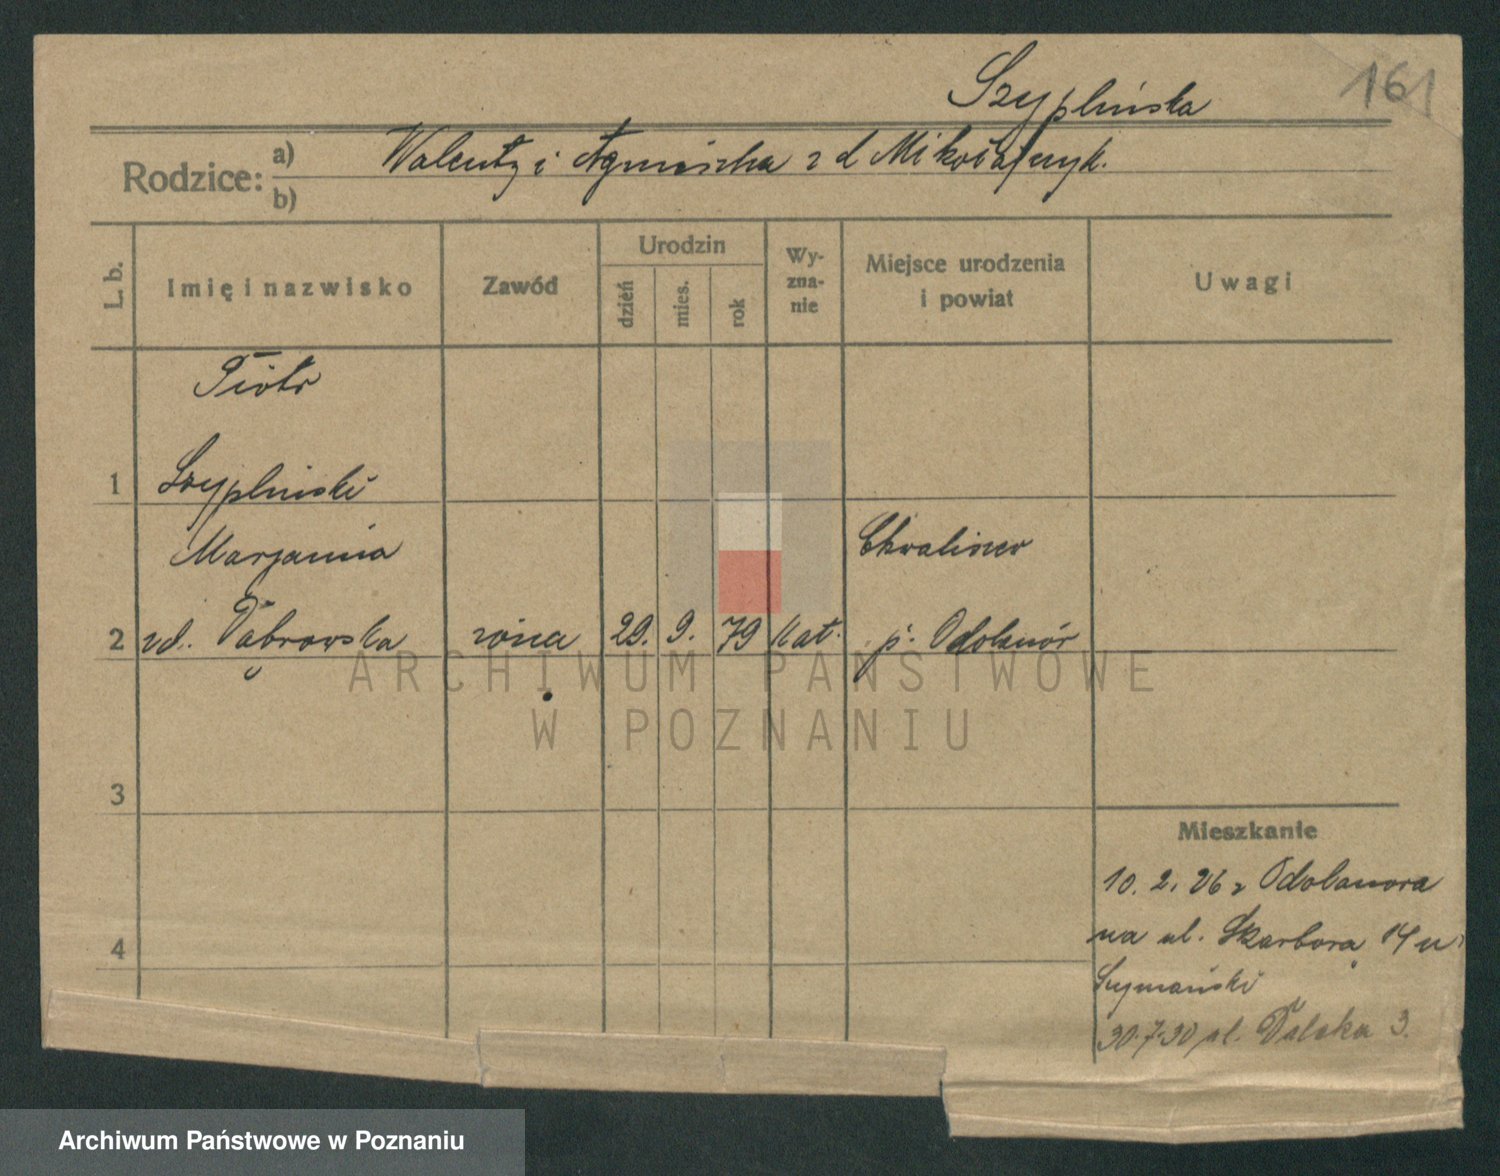 161
Szyplińska
Rodzice: a) b)
Walenty i Agnieszka z d Mikołajczyk.
L. b. Imię i nazwisko Zawód Urodzin dzień mies. rok Wy-zna-nie Miejsce urodzenia i powiat Uwagi
Piotr
1 Szypliński
Marjanna Chwaliszew
2 zd. Dąbrowska żona 29. 9. 79 kat. p. Odolanów
ARCHIWUM PAŃSTWOWE
W POZNANIU
3
Mieszkanie
10. 2. 26 z Odolanowa
4 na ul. Skarbową 14 u
Szymański
30.7.30 ul. Daleka 3.
Archiwum Państwowe w Poznaniu